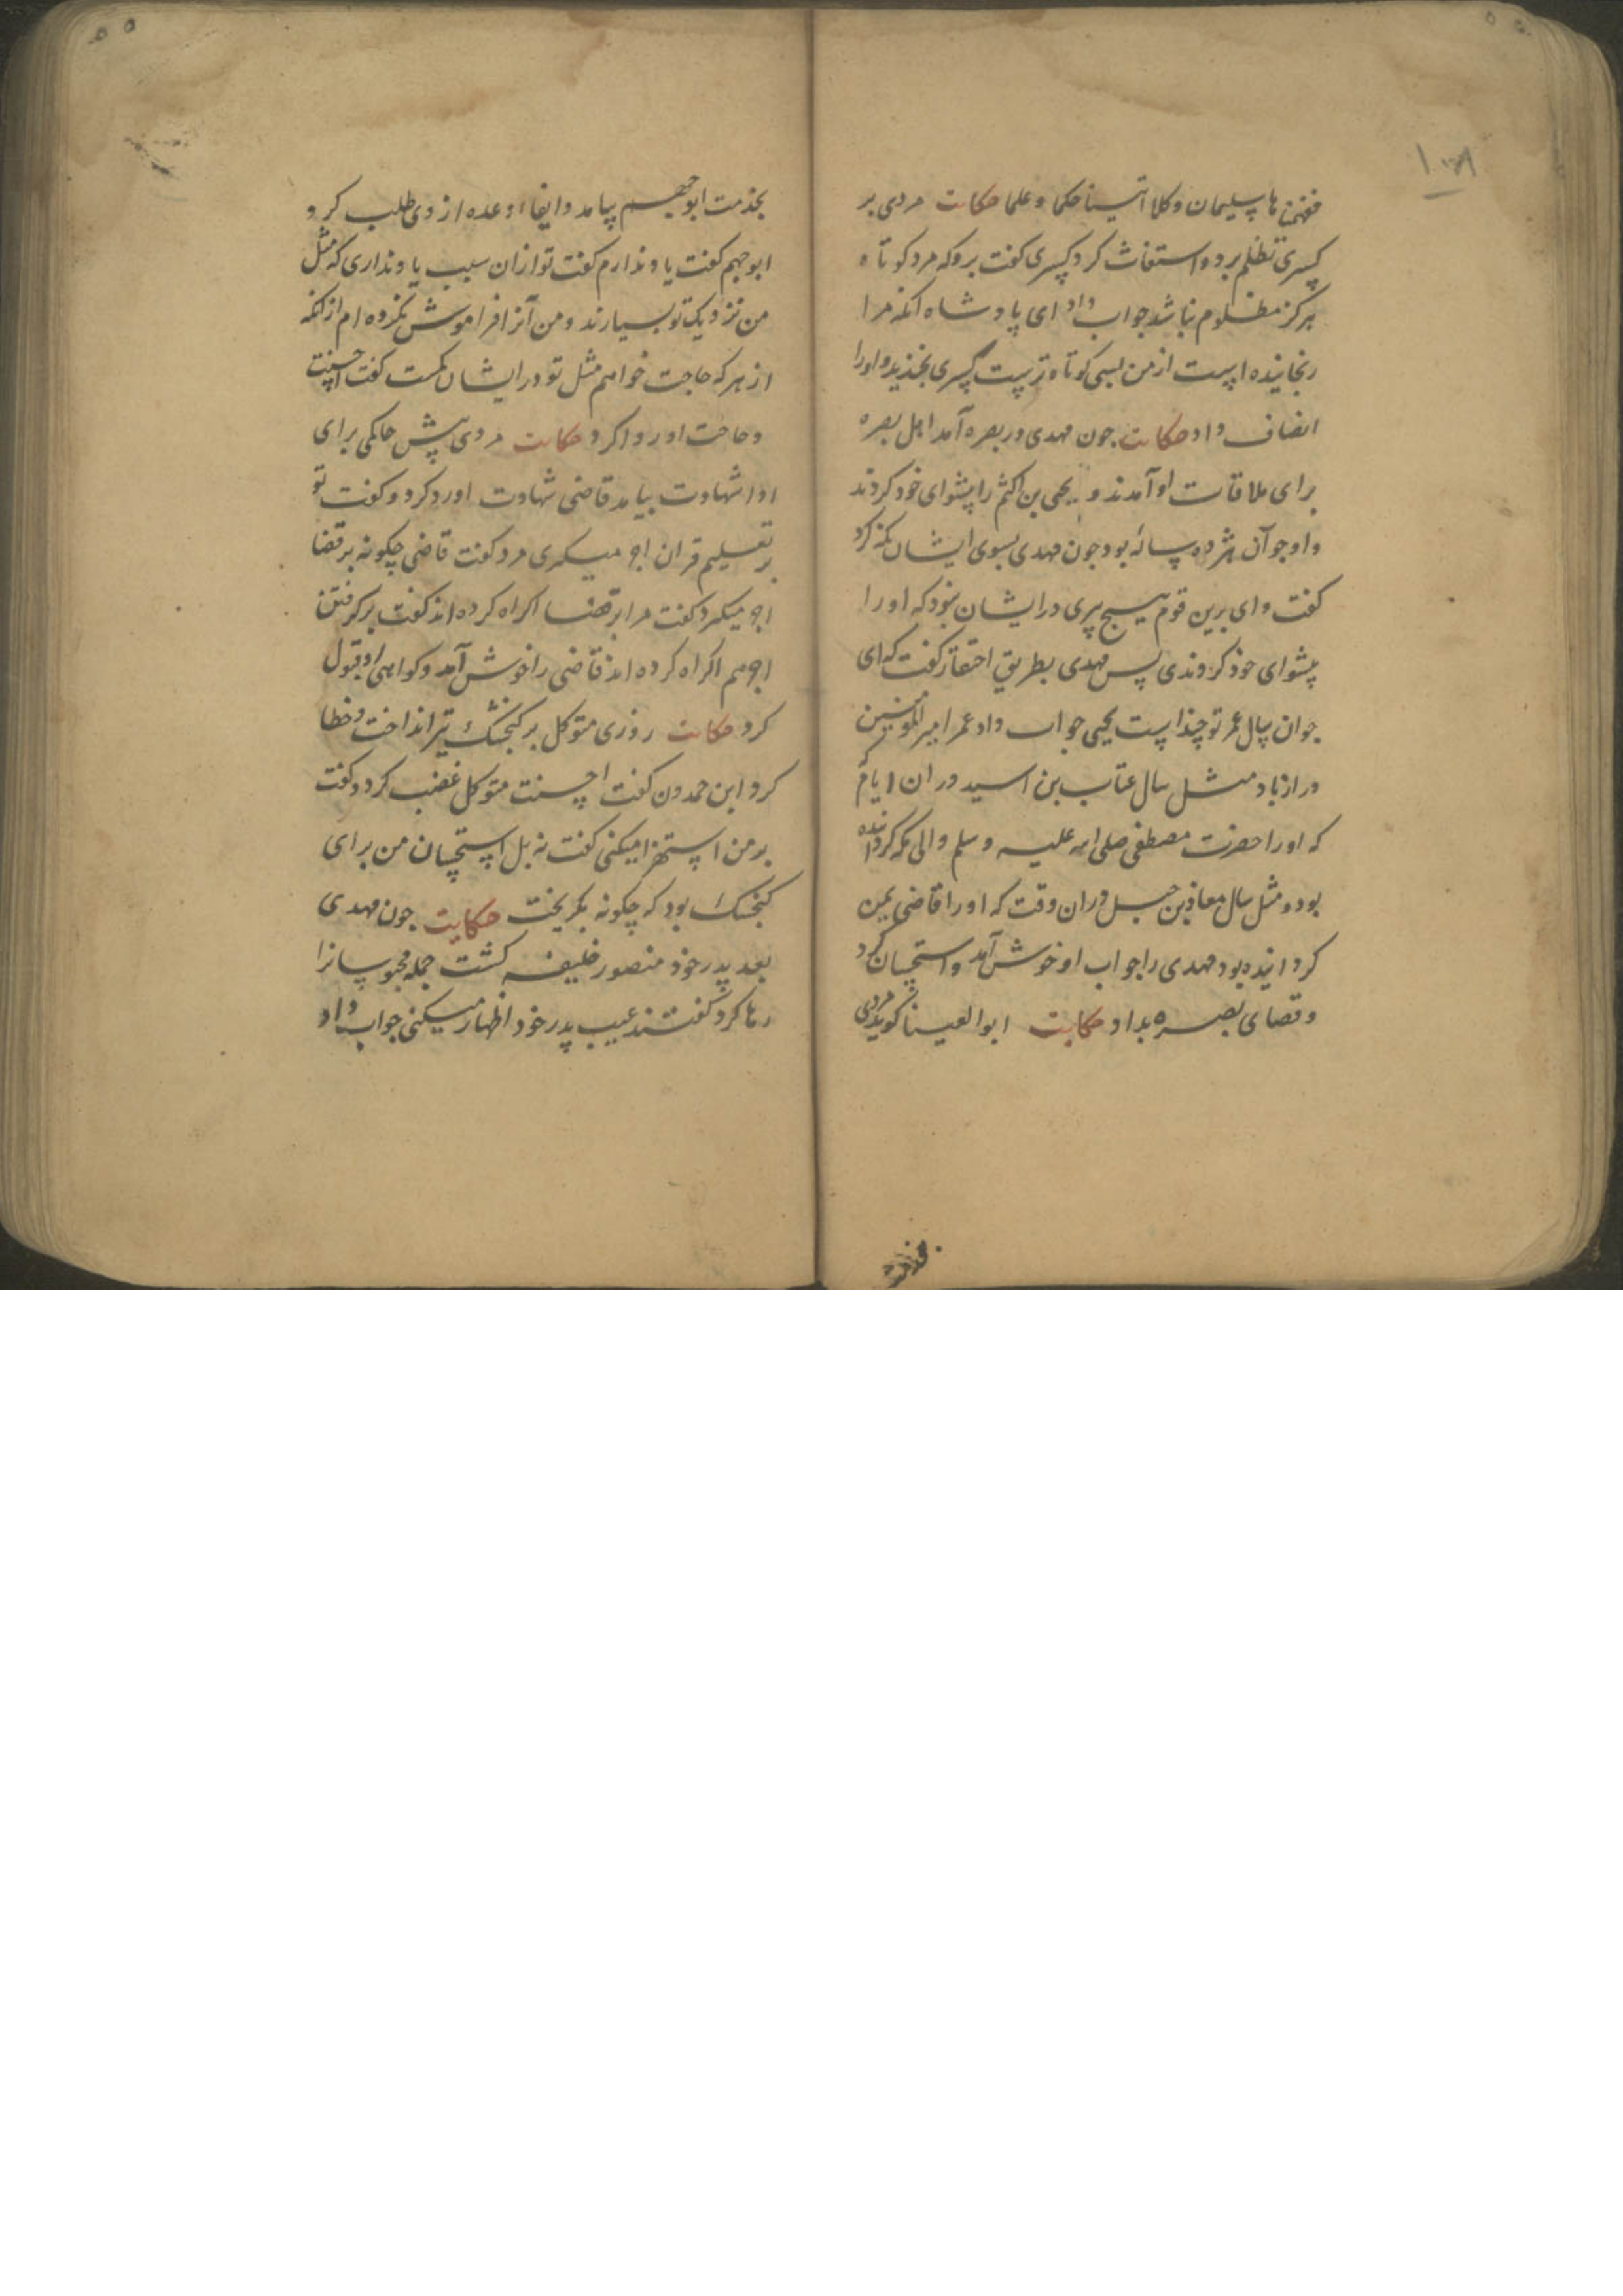 ففهمناها سلیمان و کلا اتینا حکما و علما حکایت مردی بر
کسری تظلم برد و استغاث کرد کسری گفت برو که مرد کوتاه
هرگز مظلوم نباشد جواب داد ای پادشاه آنکه مرا
رنجانیده است از من بسی کوتاه تر است کسری بخندید و اورا
انصاف داد حکایت چون مهدی در بصره آمد اهل بصره
برای ملاقات او آمدند و یحیی بن اکثم را پیشوای خود کردند
و او جوان هژده ساله بود چون مهدی بسوی ایشان نگه کرد
گفت وای برین قوم هیچ پیری در ایشان نبود که اورا
پیشوای خود کردندی پس مهدی بطریق احتقار گفت که ای
جوان سال عمر تو چند است یحیی جواب داد عمر امیر المؤمنین
دراز باد مثل سال عتاب بن اسید در ان ایام
که اورا حضرت مصطفی صلی الله علیه و سلم والی مکه گردانیده
بود و مثل سال معاذ بن جبل در ان وقت که اورا قاضی یمن
گردانیده بود مهدی را جواب او خوش آمد و استحسان کرد
و قضای بصره بداد حکایت ابو العینا گوید مردی
بخدمت ابو جهم بیامد و ایفاء وعده از وی طلب کرد
ابو جهم گفت یاد ندارم گفت تو ازان سبب یاد نداری که مثل
من نزدیک تو بسیارند و من آنرا فراموش نکرده ام از آنکه
از هر که حاجت خواهم مثل تو در ایشان کمست گفت احسنت
و حاجت او روا کرد حکایت مردی پیش حاکمی برای
ادا شهادت بیامد قاضی شهادت او رد کرد و گفت تو
بر تعلیم قران اجر میگیری مرد گفت قاضی چگونه بر قضا
اجر میگیرد گفت مرا بر قضا اکراه کرده اند گفت بر گرفتن
اجر هم اکراه کرده اند قاضی را خوش آمد و گواهی او قبول
کرد حکایت روزی متوکل بر گنجشک تیر انداخت و خطا
کرد ابن حمدون گفت احسنت متوکل غضب کرد و گفت
بر من استهزا میکنی گفت نه بل استحسان من برای
گنجشک بود که چگونه بگریخت حکایت چون مهدی
بعد پدر خود منصور خلیفه گشت جمله محبوسانرا
رها کرد گفتند عیب پدر خود اظهار میکنی جواب داد
بخدمت